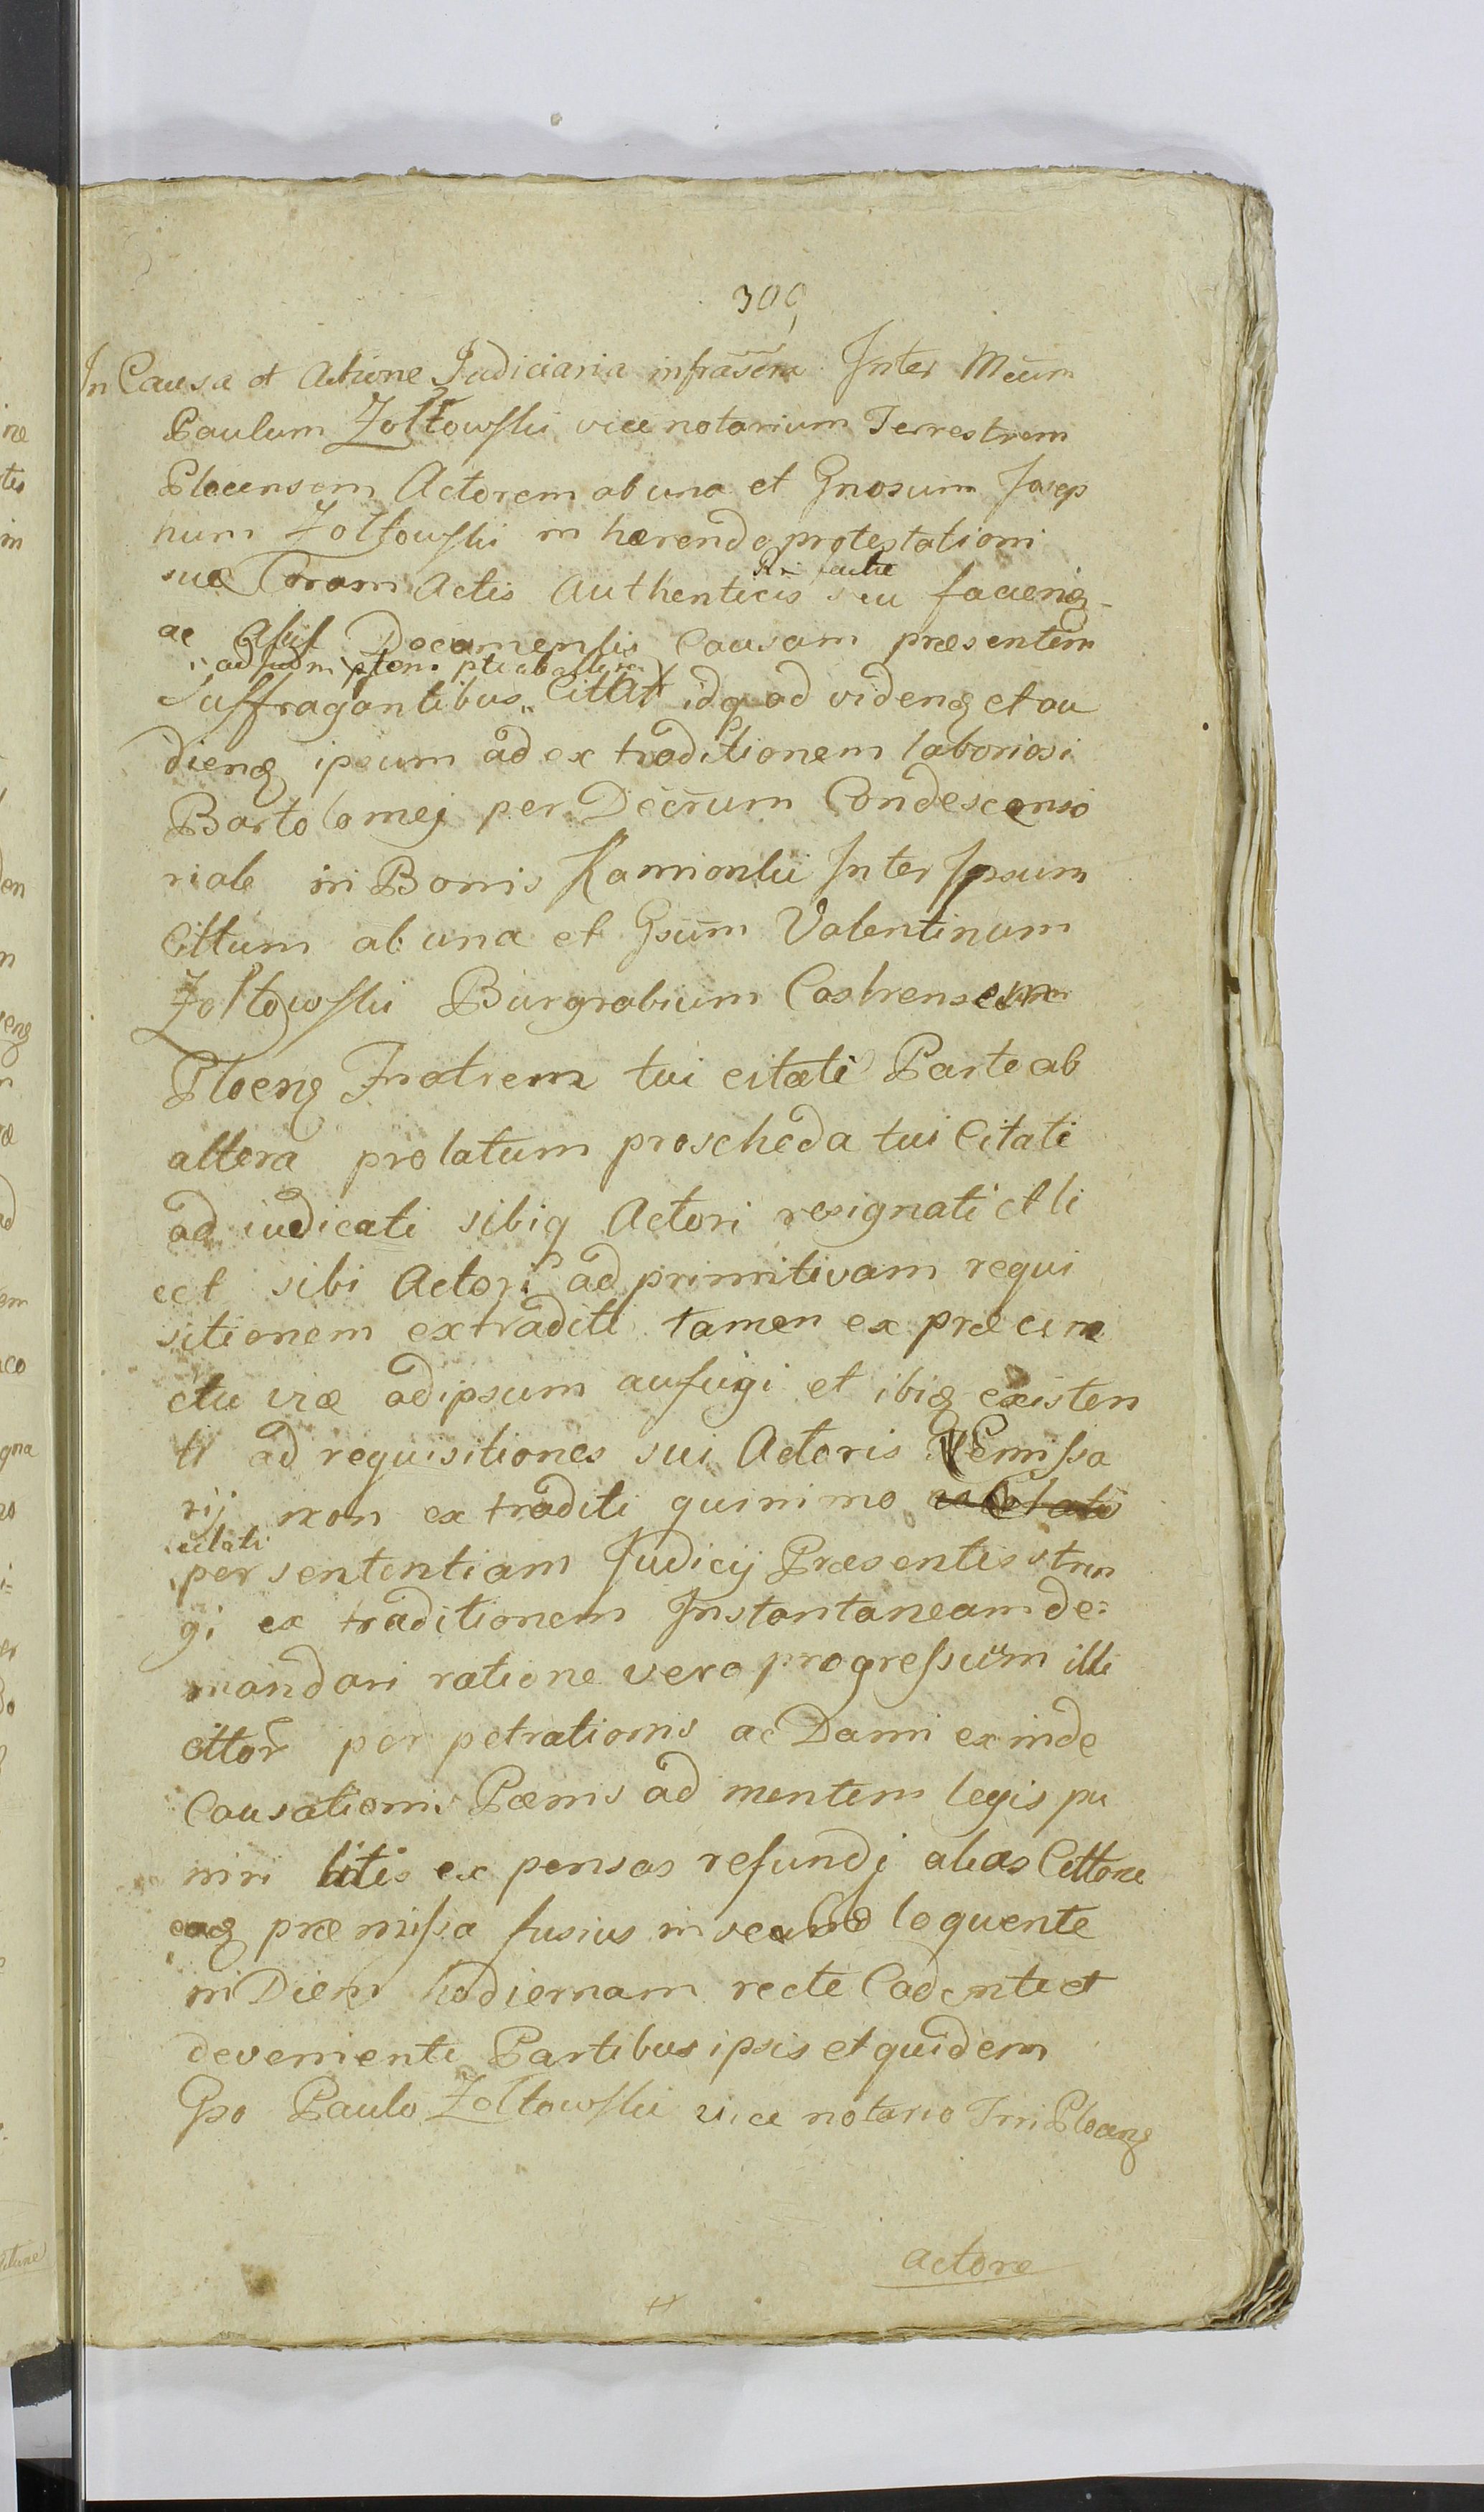 309
In Causa et Actione Judiciaria infrascra Inter Mcum
Paulum Zołtowski vice notarium Terrestrem
Plocensem Actorem ab una et Gnosum Josep
hum Zołtowski in hærendo protestationi
suæ Coram Actis Authenticis seu faciend
factæ
ac Documentis Causam præsentem
Suffragantibus Cittat idq ad videndg et au
diendg ipsum ad ex traditionem laboriosi
Bartolomej per Decrum Condescenso
riale in Bonis Kamionki Inter Ipsum
Cittum ab una et Gsum Valentinum
Zołtowski Burgrabium Castrensem
Plocensg Fratrem tui citati Parte ab
altera prolatum pro scheda tui Citati
ad iudicati sibiq Actori resignati et li
cet sibi Actori ad primitivam requi
sitionem extraditi tamen ex præcin
ctu viæ ad ipsum aufugi et ibiq existen
ti ad requisitiones sui Actoris Emissa
rij non ex traditi quinimo
citati
per sententiam Judicij Præsentis strin
gi ex traditionem Instantaneam de=
mandari ratione vero progressuum illi
cittor perpetrationis ac Damni ex inde
Causationis Pænis ad mentem legis pu
niri litis ex pensas refundi alias Cittone
eaq præmissa fusius in se loquente
in Diem hodiernam recte Cadente et
deveniente Partibus ipsis et quidem
Gso Paulo Zołtowski vice notario Trri Plocensg
actore